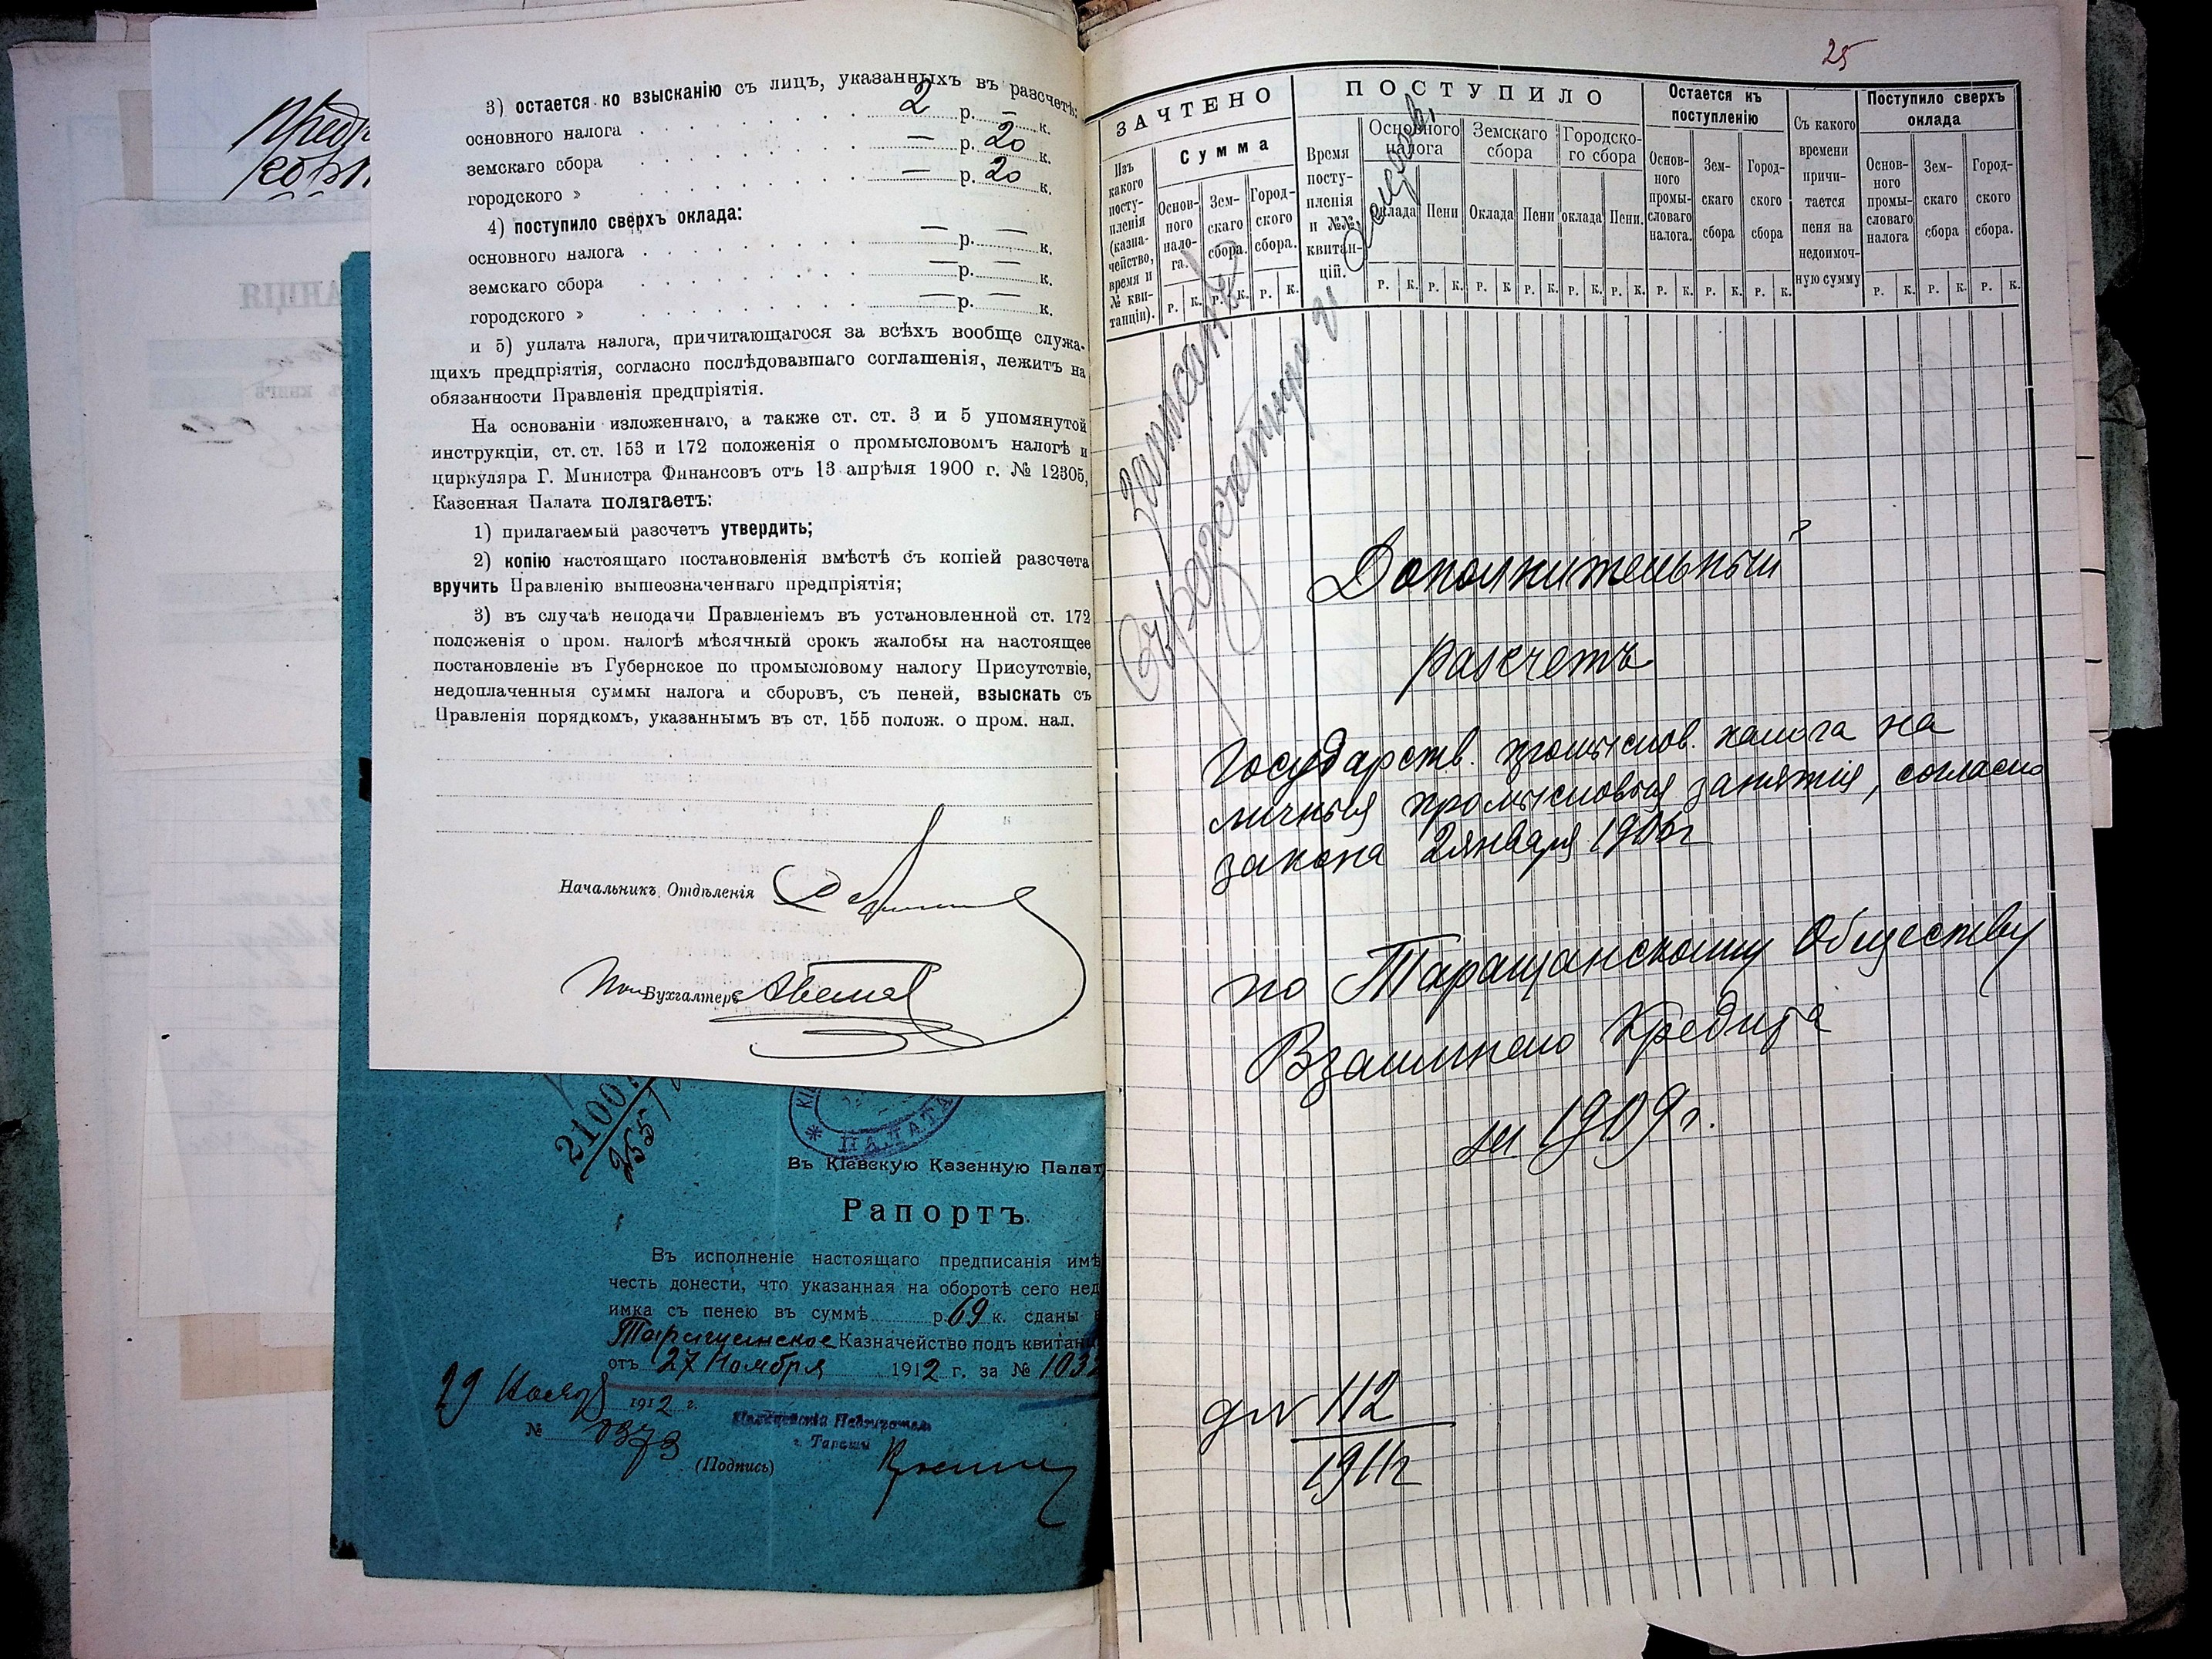 3) остается ко взысканію съ лицъ, указанныхъ въ разсчетѣ:
основного налога . . . . . . . . 2 р. — к.
земскаго сбора . . . . . . . . — р. 20 к.
городского » . . . . . . . . — р. 20 к.
4) поступило сверхъ оклада:
основного налога . . . . . . . . — р. — к.
земскаго сбора . . . . . . . . — р. — к.
городского » . . . . . . . . — р. — к.
и 5) уплата налога, причитающагося за всѣхъ вообще служа-
щихъ предпріятія, согласно послѣдовавшаго соглашенія, лежитъ на
обязанности Правленія предпріятія.
На основаніи изложеннаго, а также ст. ст. 3 и 5 упомянутой
инструкціи, ст. ст. 153 и 172 положенія о промысловомъ налогѣ и
циркуляра Г. Министра Финансовъ отъ 13 апрѣля 1900 г. № 12305,
Казенная Палата полагаетъ:
1) прилагаемый разсчетъ утвердить;
2) копію настоящаго постановленія вмѣстѣ съ копіей разсчета
вручить Правленію вышеозначеннаго предпріятія;
3) въ случаѣ неподачи Правленіемъ въ установленной ст. 172
положенія о пром. налогѣ мѣсячный срокъ жалобы на настоящее
постановленіе въ Губернское по промысловому налогу Присутствіе,
недоплаченныя суммы налога и сборовъ, съ пеней, взыскать съ
Правленія порядкомъ, указаннымъ въ ст. 155 полож. о пром. нал.
Начальникъ Отдѣленія
Пом Бухгалтера
2100
265
ПАЛАТА
Въ Кіевскую Казенную Палат
Рапортъ.
Въ исполненіе настоящаго предписанія имѣ
честь донести, что указанная на оборотѣ сего нед
имка съ пенею въ суммѣ р. 69 к. сданы в
Таращанское Казначейство подъ квитан
отъ 27 Ноября 1912 г. за № 103
29 Ноября 1912 г.
№ 8373
г. Таращи
(Подпись)
25
ЗАЧТЕНО
Изъ какого посту-пленія (казна-чейство, время и № кви-танціи).
Сумма
Основ-ного нало-га.
Зем-скаго сбора.
Город-ского сбора.
ПОСТУПИЛО
Время посту-пленія и №№ квитан-цій.
Основного налога
Земскаго сбора
Городско-го сбора
Оклада Пени Оклада Пени оклада Пени.
Остается къ поступленію
Основ-ного промы-словаго налога.
Зем-скаго сбора
Город-ского сбора
Съ какого времени причи-тается пеня на недоимоч-ную сумму
Поступило сверхъ оклада
Основ-ного промы-словаго налога
Зем-скаго сбора
Город-ского сбора.
Р. К. Р. К. Р. К. Р. К. Р. К. Р. К. Р. К. Р. К. Р. К. Р. К. Р. К. Р. К. Р. К. Р. К. Р. К.
Дополнительный
расчетъ
Государств. промыслов. налога на
личныя промысловыя занятія, согласно
закона 2 января 1906 г
по Таращанскому Обществу
Взаимнаго Кредита
за 1909 г.
112
1911 г